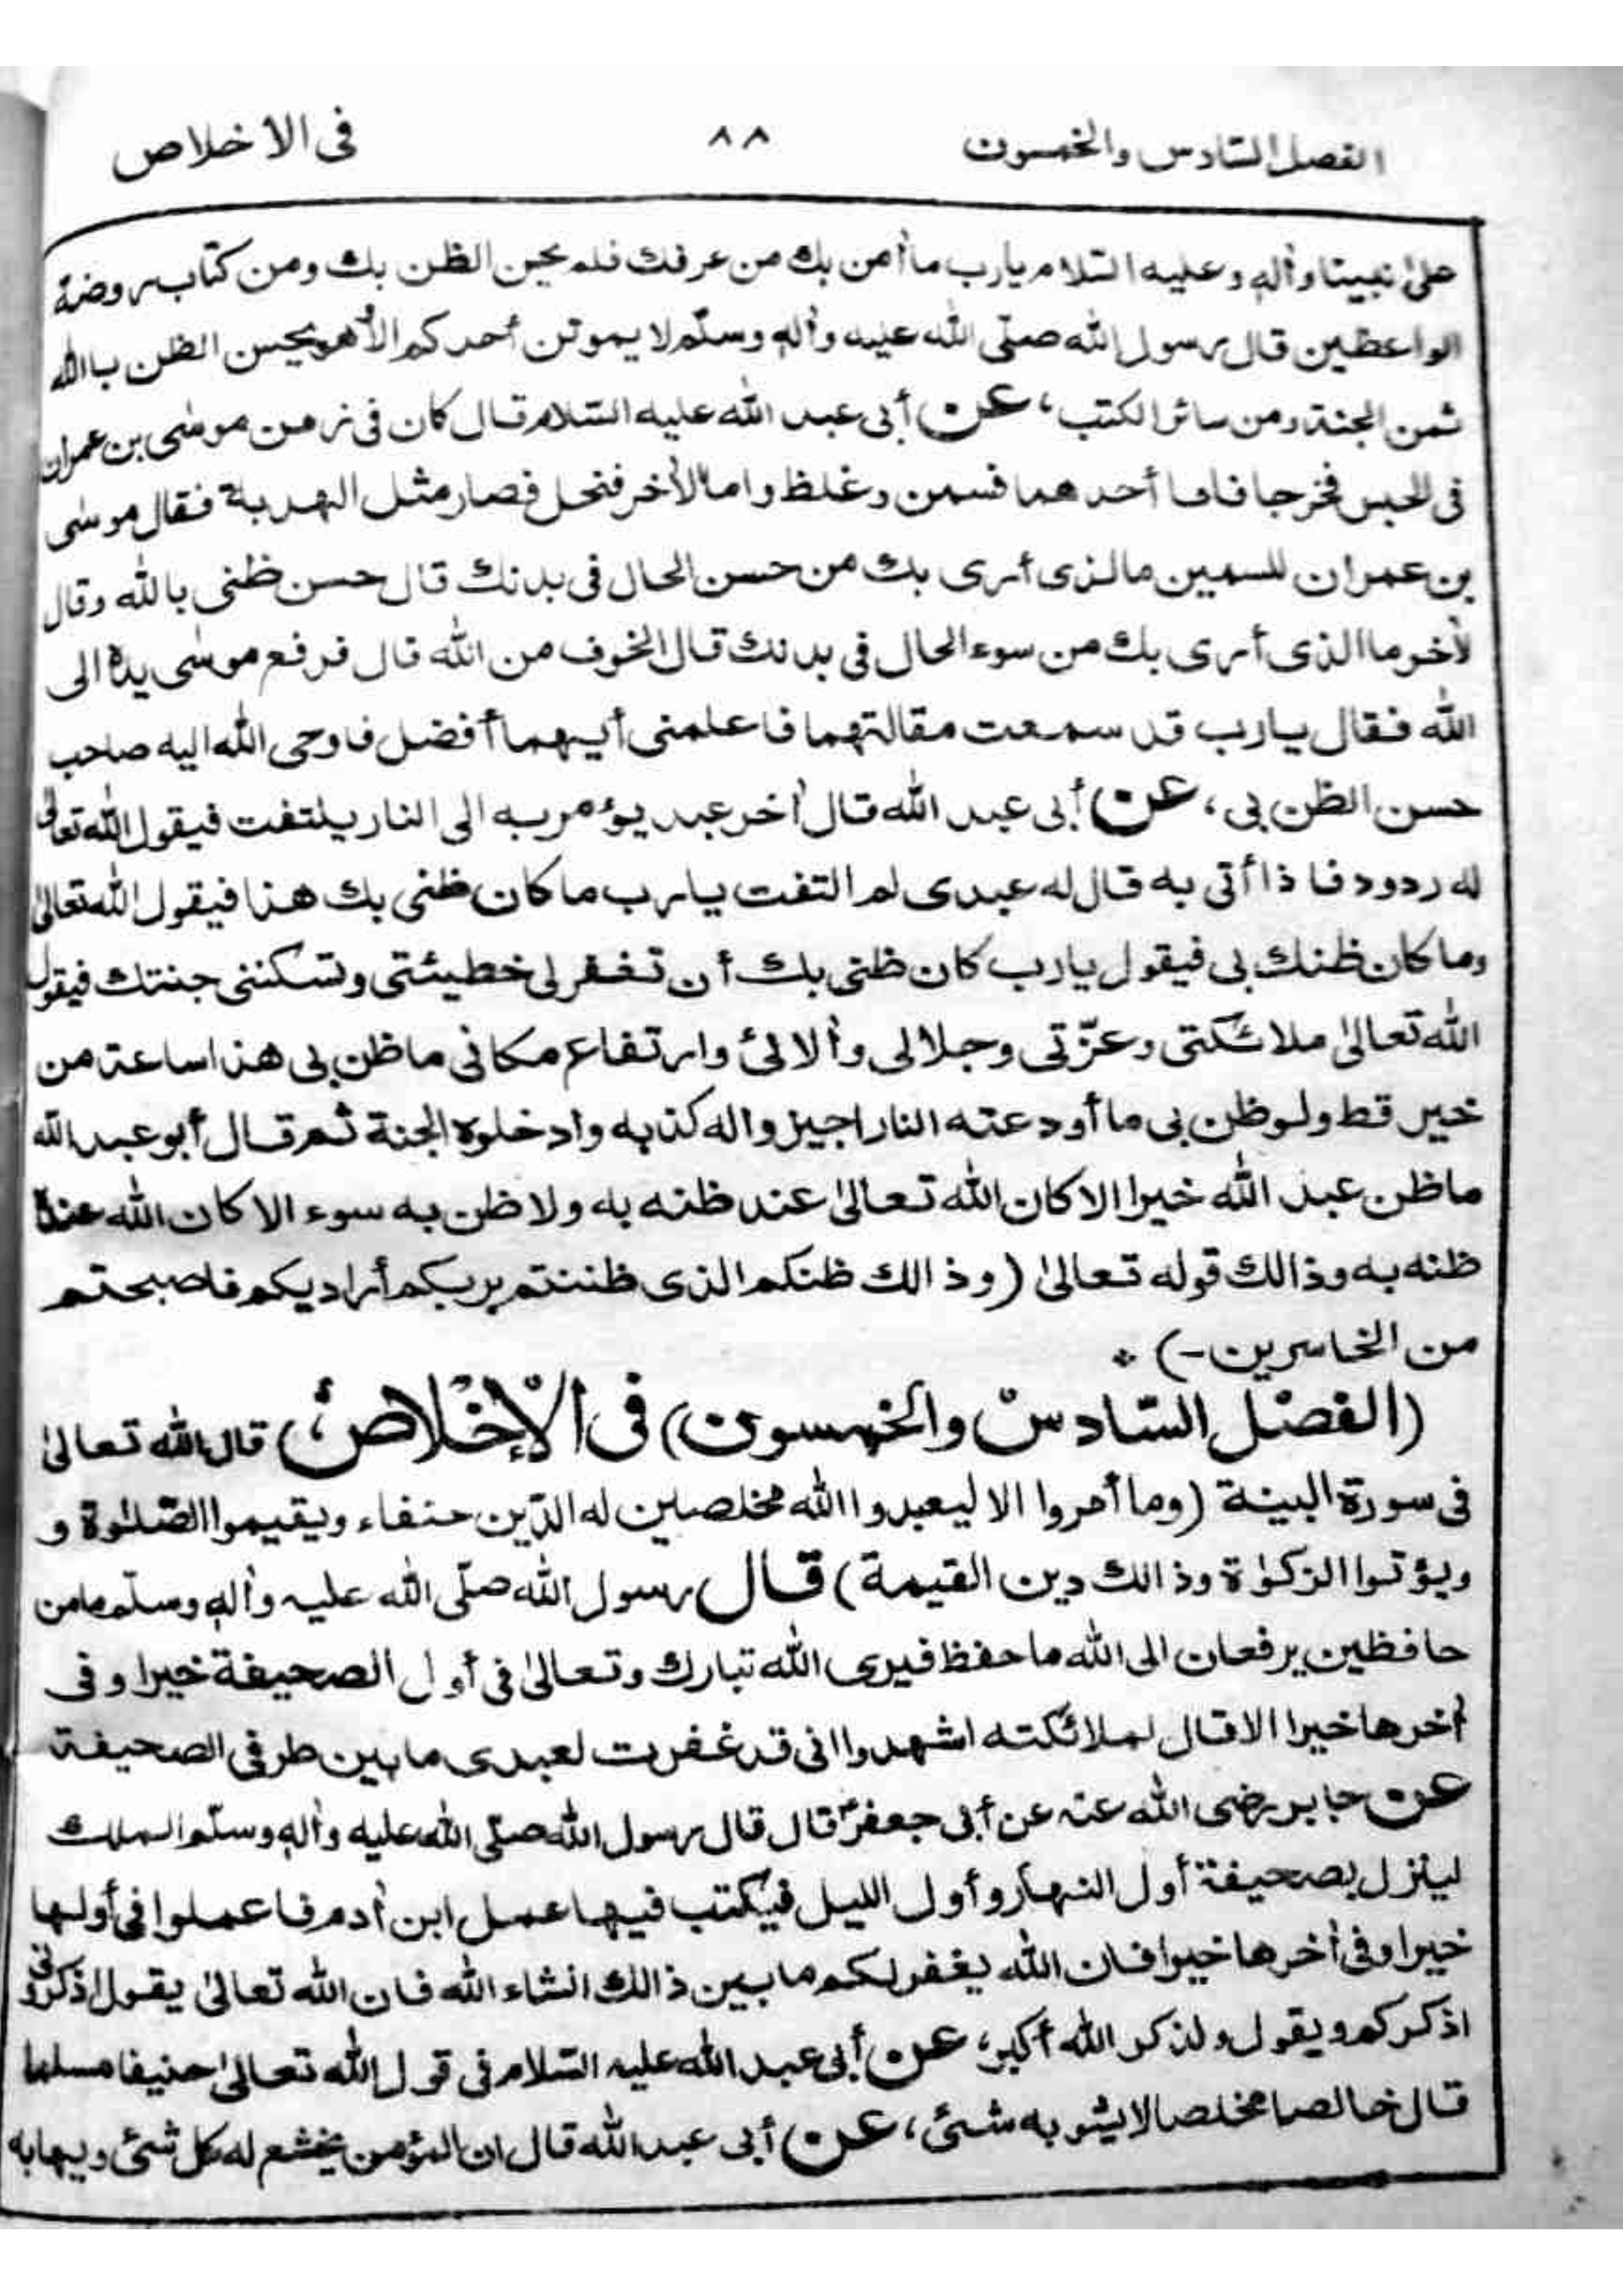 الفصل السّادس والخمسون
٨٨
فی الأخلاص
علیٰ نبینا واٰلهٖ وعلیه السّلام یارب ما أمن بك من عرفك فلم یحسن الظن بك ومن کتاب روضة
الواعظین قال رسول الله صلّی الله علیه واٰلهٖ وسلّم لا یموتن أحدکم الا هو یحسن الظن باالله
ثمن الجنة ومن سائر الکتب، عن أبی عبد الله علیه السّلام قال کان فی زمن موسٰی بن عمران
فی الحبس فخرجا فاما أحدهما فسمن وغلظ واما الأخر فنحل فصار مثل الهدبة فقال موسٰی
بن عمران للسمین مالذی أری بك من حسن الحال فی بدنك قال حسن ظنی بالله وقال
لأخر وما الذی أری بك من سوء الحال فی بدنك قال الخوف من الله قال فرفع موسٰی یدہٗ الی
الله فقال یارب قد سمعت مقالتهما فاعلمنی أیهما أفضل فاوحی الله الیه صاحب
حسن الظن بی، عن أبی عبد الله قال اٰخر عبد یؤمر به الی النار یلتفت فیقول الله تعالٰی
له ردود فاذا أتی به قال له عبدی لم التفت یارب ما کان ظنی بك هذا فیقول الله تعالیٰ
وما کان ظنك بی فیقول یارب کان ظنی بك أن تغفر لی خطیئتی وتسکننی جنتك فیقول
الله تعالیٰ ملائکتی وعزّتی وجلالی واٰلائی وارتفاع مکانی ما ظن بی هذا ساعة من
خیر قط ولو ظن بی ما أودعته النار اجیزواله کذبه وادخلوہ الجنة ثم قال أبو عبد الله
ما ظن عبد الله خیرا الا کان الله تعالیٰ عند ظنه به ولا ظن به سوء الا کان الله عند
ظنه به وذالك قوله تعالیٰ (وذالك ظنکم الذی ظننتم بربکم أرادیکم فاصبحتم
من الخاسرین-) *
(الفصل السّادس والخمسون) فی الْإخْلاص) قال الله تعالیٰ
فی سورة البینة (وما أمروا الا لیعبدوا الله مخلصین له الدّین حنفاء ویقیموا الصّلٰوة و
ویؤتوا الزکٰوة وذالك دین القیمة) قال رسول الله صلّی الله علیه واٰلهٖ وسلّم ما من
حافظین یرفعان الی الله ما حفظ فیری الله تبارك وتعالیٰ فی أول الصحیفة خیرا وفی
اٰخرها خیرا الا قال لملائکته اشهدوا انی قد غفرت لعبدی ما بین طرفی الصحیفة
عن جابر رضی الله عنه عن أبی جعفرؑ قال قال رسول الله صلّی الله علیه واٰلهٖ وسلّم الملك
لینزل بصحیفة أول النهار وأول اللیل فیکتب فیها عمل ابن اٰدم فاعملوا فی أولها
خیرا وفی اٰخرها خیرا فان الله یغفر لکم ما بین ذالك انشاء الله فان الله تعالیٰ یقول اذکرونی
اذکرکم ویقول ولذکر الله أکبر، عن أبی عبد الله علیه السّلام فی قول الله تعالیٰ حنیفا مسلما
قال خالصا مخلصا لا یشوبه شئی، عن أبی عبد الله قال ان المؤمن یخشع له کل شئی ویهابه